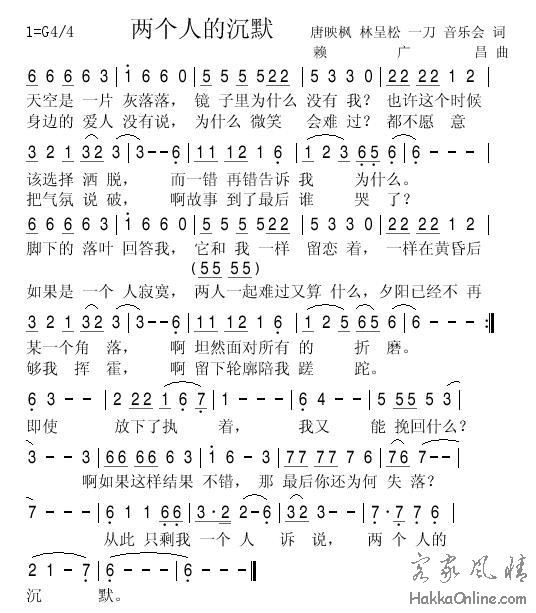 1=G4/4 两个人的沉默 唐映枫 林呈松 一刀 音乐会 词
赖 广 昌 曲
6 6 6 6 3 | 1 6 6 0 | 5 5 5 5 22 | 5 3 3 0 | 22 22 1 2 |
天空是 一片 灰落落, 镜 子里为什么 没有 我? 也许这个时候
身边的 爱人 没有说, 为什么 微笑 会难 过? 都不愿 意
3 2 1 32 3 | 3 - - 6 | 11 12 1 6 | 1 2 3 6 5 6 | 6 - - - |
该选择 洒 脱, 而一错 再错告诉 我 为什么。
把气氛 说 破, 啊故事 到了最后 谁 哭 了?
6 6 6 6 3 | 1 6 6 0 | 5 5 5 5 22 | 5 3 3 0 | 22 22 1 2 |
脚下的 落叶 回答我, 它和 我 一样 留恋 着, 一样在黄昏后
(55 55)
如果是 一个 人寂寞, 两人一起难过又算 什么,夕阳已经不 再
3 2 1 32 3 | 3 - - 6 | 11 12 1 6 | 1 2 5 6 5 | 6 - - - :‖
某一个 角 落, 啊 坦然面对所有 的 折 磨。
够我 挥 霍, 啊 留下轮廓陪我 蹉 跎。
6 3 - - | 2 22 1 6 7 | 1 - - - | 6 4 - - | 5 55 5 3 |
即使 放下了执 着, 我又 能 挽回什么?
3 - - 3 | 66 66 6 3 | 1 6 - - | 77 77 7 6 | 76 7 - - |
啊如果这样结果 不错, 那 最后你还为何 失 落?
7 - - - | 6 1 1 66 | 3·2 2-6 | 32 3 - - | 7·7 7 6 |
从此 只剩我 一个 人 诉 说, 两 个 人的
2 1 - 7 | 6 - - - | 6 - - - ‖
沉 默。
客家风情
HakkaOnline.com